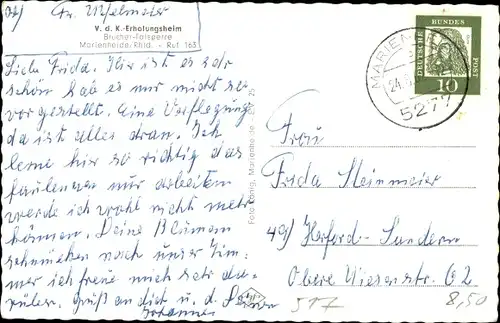 Fr. Uhlmeier
V. d. K.-Erholungsheim
Brucher-Talsperre
Marienheide/Rhld. - Ruf 163
Liebe Frida. Hier ist es sehr
schön hab es mir nicht so
vorgestellt. Eine Verflegung
da ist alles dran. Ich
lerne hier so richtig das
faulenzen nur arbeiten
werde ich wohl nicht mehr
können. Deine Blumen
schmücken noch unser Zim-
mer ich freue mich sehr da-
rüber. Gruß an dich u. d.
Johannes
Foto König, Marienheide
MARIEN
24.
5277
DEUTSCHE BUNDESPOST
10
Frau
Frida Steinmeier
49) Herford-Sundern
Obere Wiesenstr. 62
517
8,50